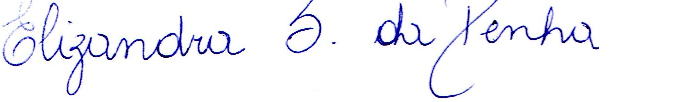 Elizandra S. da Penha